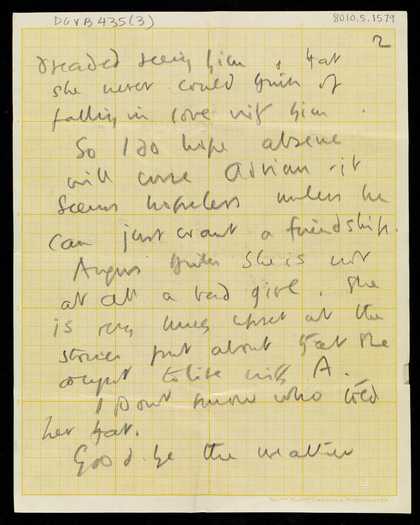 DGVB 435 (3)
8010.5.1579
2
dreaded seeing him, & that
she never could think of
falling in love with him.
So I do hope absence
will cure Adrian - it
seems hopeless unless he
can just want a friendship.
Angus thinks she is not
at all a bad girl. She
is very much upset at the
stories put about that she
ought to live with A.
I dont know who told
her that.
the weather